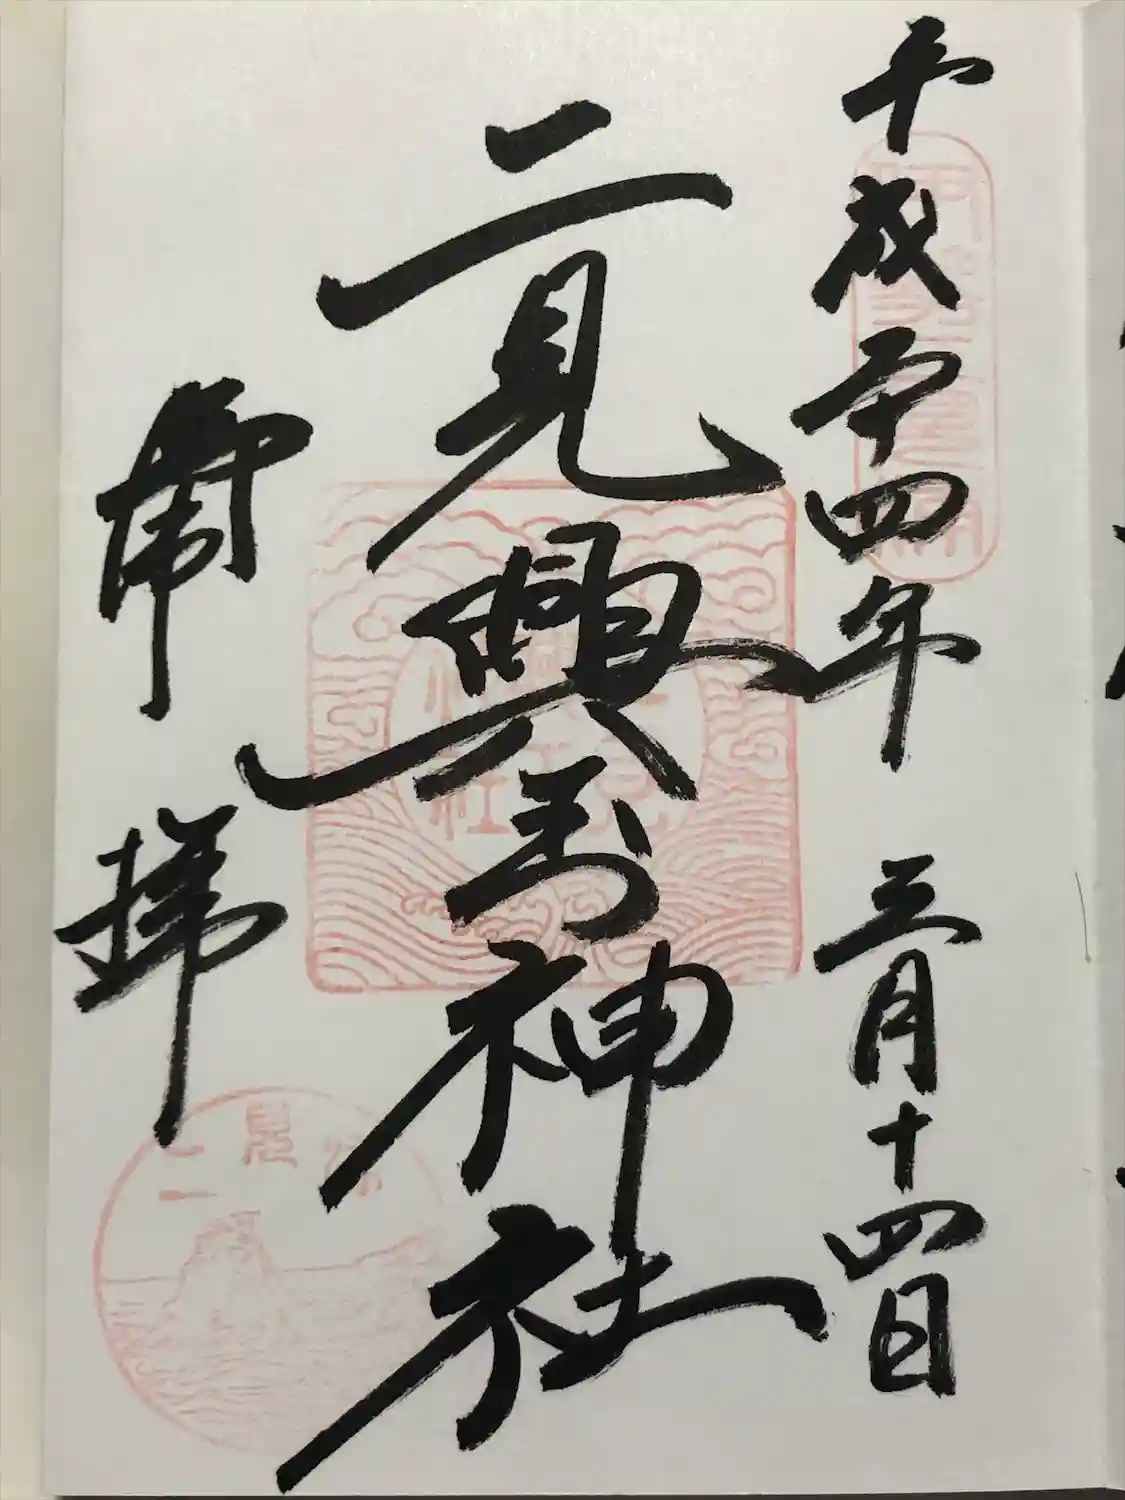 平成二十四年 三月十四日
二見興玉神社
奉拝
二見浦